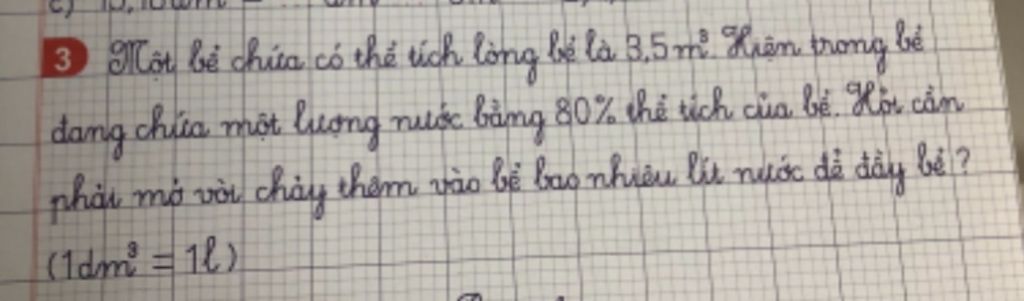 3 Một bể chứa có thể tích lòng bể là 3,5m³. Hiện trong bể
đang chứa một lượng nước bằng 80% thể tích của bể. Hỏi cần
phải mở vòi chảy thêm vào bể bao nhiêu lít nước để đầy bể?
(1dm³ = 1l)